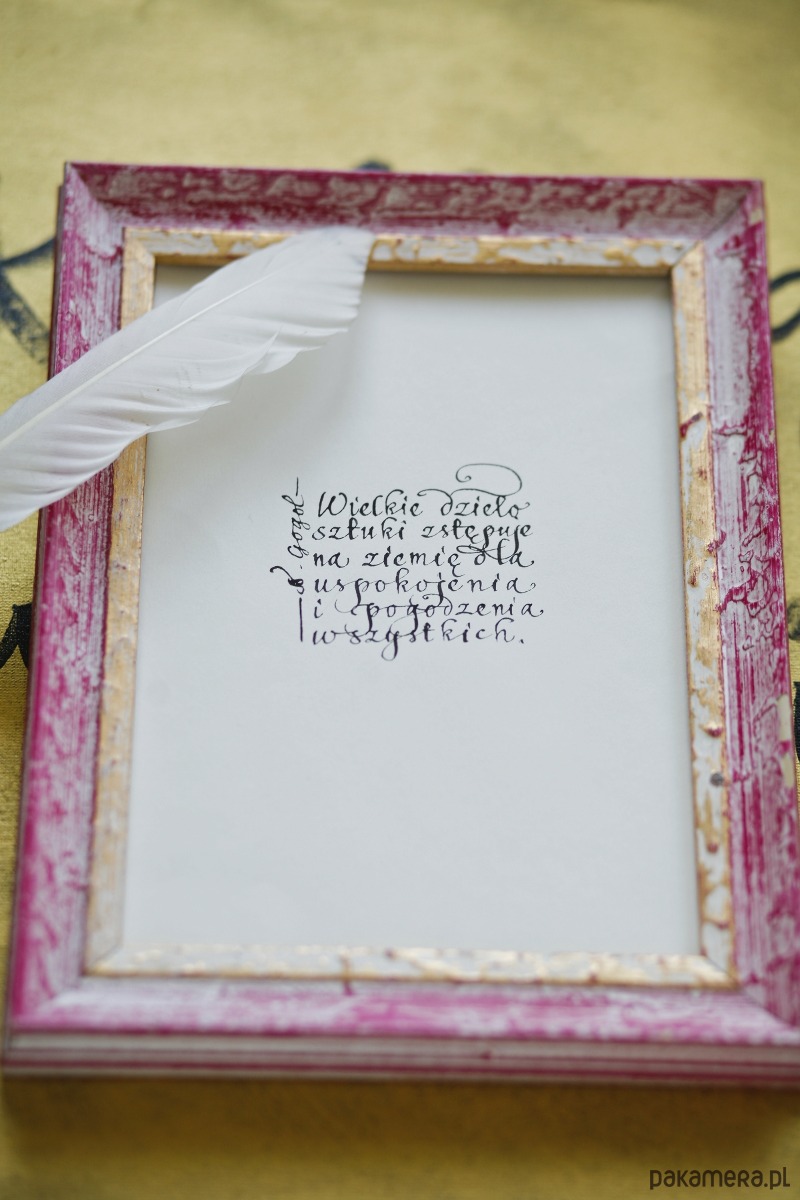 Wielkie dzieło
sztuki zstępuje
na ziemię dla
uspokojenia
i pogodzenia
wszystkich.
Gogol
pakamera.pl